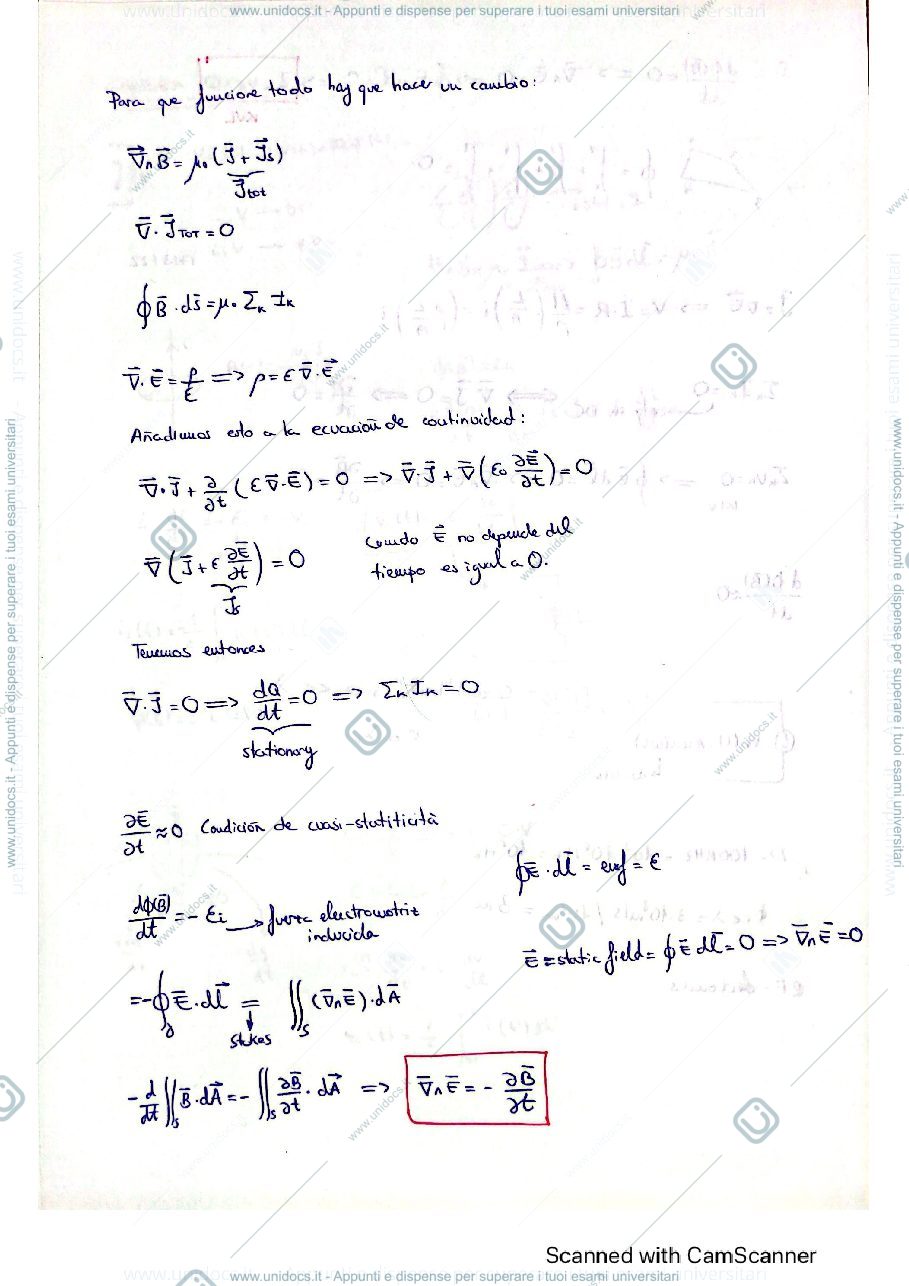 www.unidocs.it - Appunti e dispense per superare i tuoi esami universitari
Para que funcione todo hay que hacer un cambio:
∇⃗∧B⃗ = μ₀ (J⃗ + J⃗s)
J⃗tot
∇⃗·J⃗TOT = 0
∮B⃗·ds⃗ = μ₀ Σκ Iκ
∇⃗·E⃗ = ρ/ε => ρ = ε∇⃗·E⃗
Añadimos esto a la ecuación de continuidad:
∇⃗·J⃗ + ∂/∂t (ε∇⃗·E⃗) = 0 => ∇⃗·J⃗ + ∇⃗(ε₀ ∂E⃗/∂t) = 0
∇⃗(J⃗ + ε ∂E⃗/∂t) = 0
J⃗s
Cuando E⃗ no depende del
tiempo es igual a 0.
Tenemos entonces
∇⃗·J⃗ = 0 => dQ/dt = 0 => Σκ Iκ = 0
stationary
∂E⃗/∂t ≈ 0 Condición de cuasi-statiticità
∮E⃗·dl⃗ = emf = ε
dϕ(B⃗)/dt = - εi → fuerza electromotriz
inducida
E⃗ = static field = ∮E⃗ dl⃗ = 0 => ∇⃗∧E⃗ = 0
= -∮∂ E⃗·dl⃗ = ∬S (∇⃗∧E⃗)·dA⃗
stokes
- d/dt ∬S B⃗·dA⃗ = - ∬S ∂B⃗/∂t · dA⃗ => ∇⃗∧E⃗ = - ∂B⃗/∂t
Scanned with CamScanner
www.unidocs.it - Appunti e dispense per superare i tuoi esami universitari